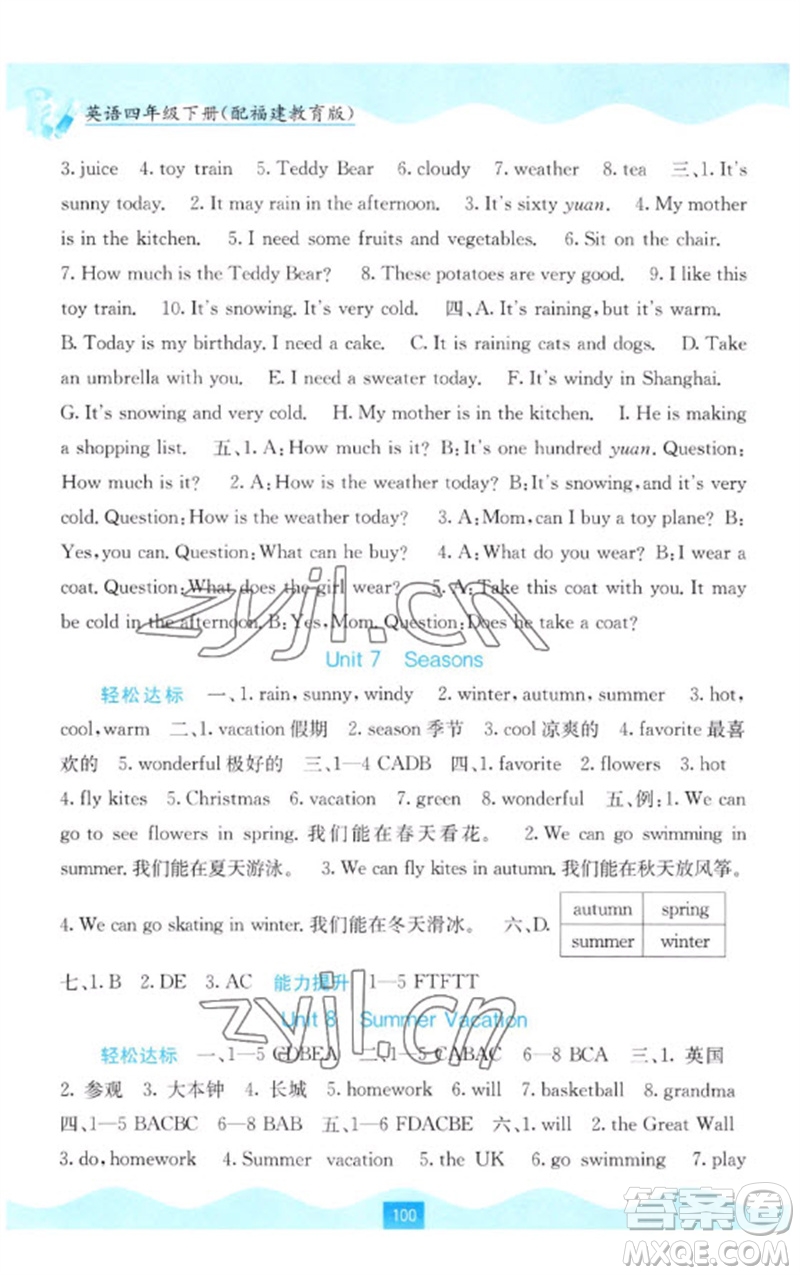 英语四年级下册(配福建教育版)
3. juice 4. toy train 5. Teddy Bear 6. cloudy 7. weather 8. tea 三、1. It's
sunny today. 2. It may rain in the afternoon. 3. It's sixty yuan. 4. My mother
is in the kitchen. 5. I need some fruits and vegetables. 6. Sit on the chair.
7. How much is the Teddy Bear? 8. These potatoes are very good. 9. I like this
toy train. 10. It's snowing. It's very cold. 四、A. It's raining, but it's warm.
B. Today is my birthday. I need a cake. C. It is raining cats and dogs. D. Take
an umbrella with you. E. I need a sweater today. F. It's windy in Shanghai.
G. It's snowing and very cold. H. My mother is in the kitchen. I. He is making
a shopping list. 五、1. A: How much is it? B: It's one hundred yuan. Question:
How much is it? 2. A: How is the weather today? B: It's snowing, and it's very
cold. Question: How is the weather today? 3. A: Mom, can I buy a toy plane? B:
Yes, you can. Question: What can he buy? 4. A: What do you wear? B: I wear a
coat. Question: What does the girl wear? 5. A: Take this coat with you. It may
be cold in the afternoon. B: Yes, Mom. Question: Does he take a coat?
Unit 7 Seasons
轻松达标 一、1. rain, sunny, windy 2. winter, autumn, summer 3. hot,
cool, warm 二、1. vacation 假期 2. season 季节 3. cool 凉爽的 4. favorite 最喜
欢的 5. wonderful 极好的 三、1—4 CADB 四、1. favorite 2. flowers 3. hot
4. fly kites 5. Christmas 6. vacation 7. green 8. wonderful 五、例:1. We can
go to see flowers in spring. 我们能在春天看花。 2. We can go swimming in
summer. 我们能在夏天游泳。 3. We can fly kites in autumn. 我们能在秋天放风筝。
4. We can go skating in winter. 我们能在冬天滑冰。 六、D.
autumn spring
summer winter
七、1. B 2. DE 3. AC 能力提升 1—5 FTFTT
Unit 8 Summer Vacation
轻松达标 一、1—5 CDBEA 二、1—5 CABAC 6—8 BCA 三、1. 英国
2. 参观 3. 大本钟 4. 长城 5. homework 6. will 7. basketball 8. grandma
四、1—5 BACBC 6—8 BAB 五、1—6 FDACBE 六、1. will 2. the Great Wall
3. do, homework 4. Summer vacation 5. the UK 6. go swimming 7. play
100
zyjl.cn
zyjl.cn
答案卷
MXQE.COM